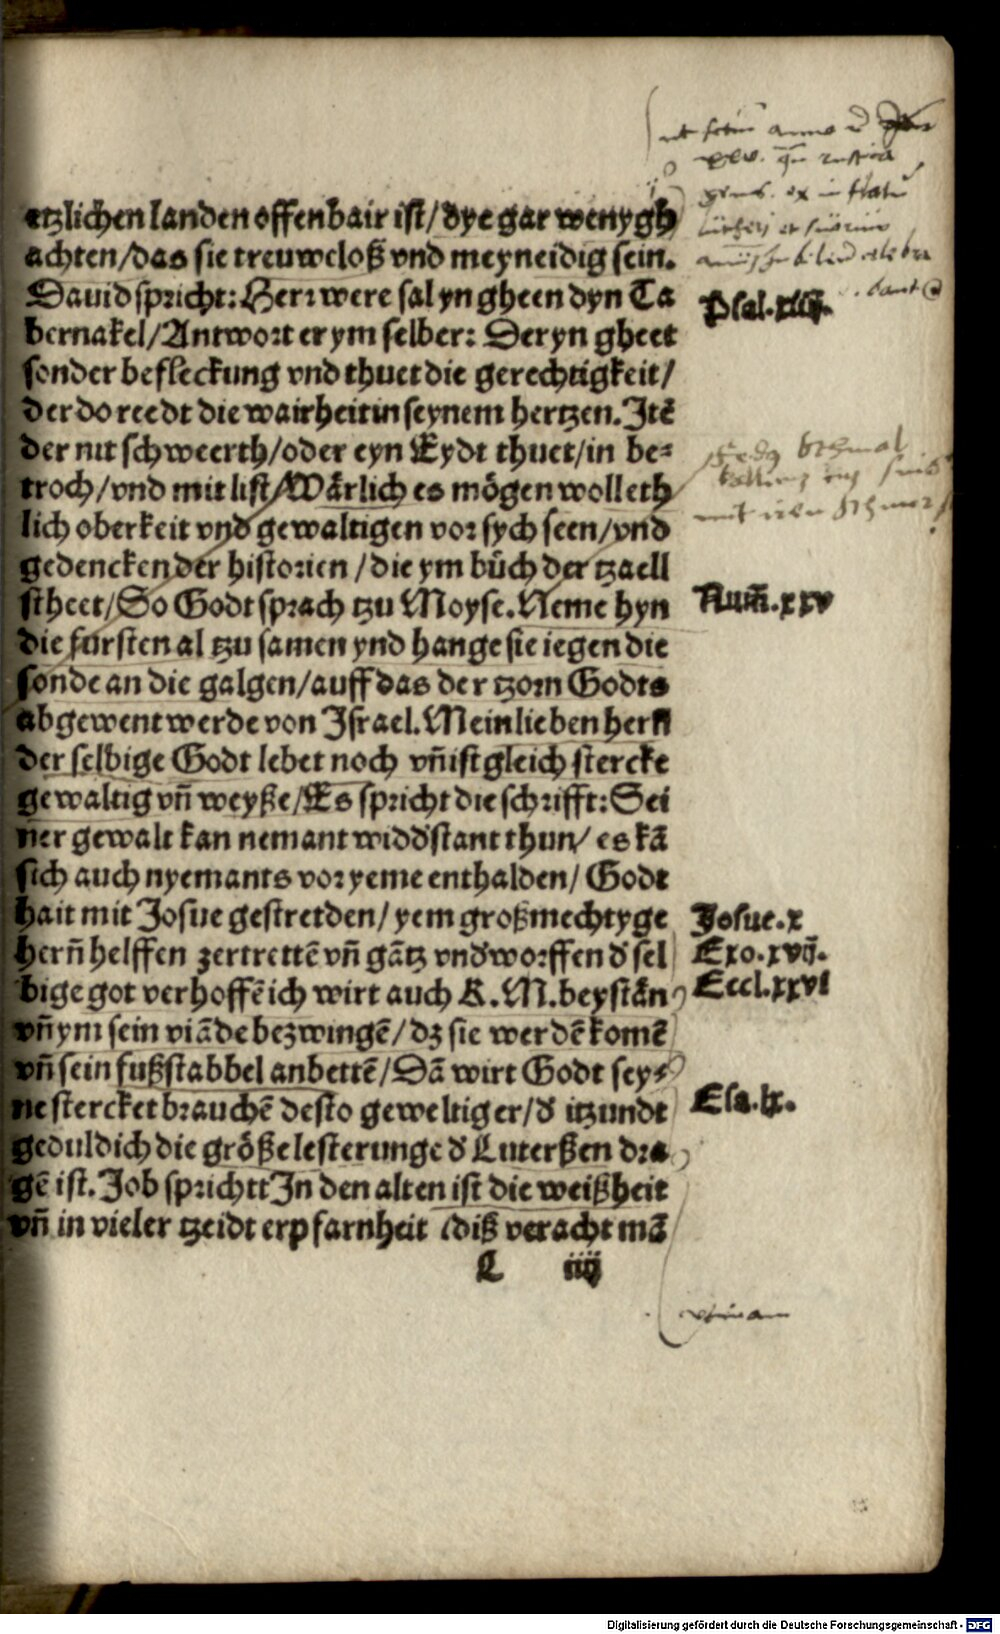 etzlichen landen offenbair ist/dye gar wenygh
achten/das sie treuweloß vnd meyneidig sein.
Dauid spricht: Herr were sal yn gheen dyn Ta
bernakel/Antwort er ym selber: Der yn gheet
sonder befleckung vnd thuet die gerechtigkeit/
der do reedt die wairheit in seynem hertzen. Itē
der nit schweerth/oder eyn Eydt thuet/in be⸗
troch/vnd mit list/Wärlich es mögen wolleth
lich oberkeit vnd gewaltigen vor sych seen/vnd
gedencken der historien/die ym bůch der tzaell
stheet/So Godt sprach tzu Moyse. Neme hyn
die fursten al tzu samen ynd hange sie iegen die
sonde an die galgen/auff das der tzorn Godts
abgewent werde von Israel. Mein lieben herñ
der selbige Godt lebet noch vñ ist gleich stercke
gewaltig vñ weyße/Es spricht die schrifft: Sei
ner gewalt kan nemant widd'stant thun/es kā
sich auch nyemants vor yeme enthalden/Godt
hait mit Josue gestretden/yem großmechtyge
herñ helffen zertrettē vñ gātz vnd'worffen d' sel
bige got verhoffē ich wirt auch K. M. beystān
vñ ym sein viāde bezwingē/dz sie werdē komē
vñ sein fußstabbel anbettē/Dā wirt Godt sey⸗
ne stercket brauchē desto geweltiger/d' itzundt
geduldich die größe lesterunge d' Luterßen dra
gē ist. Job sprichtt In den alten ist die weißheit
vñ in vieler tzeidt erpfarnheit/diß veracht mā
C iiij
Psal.xiiij.
Num̄.xxv
Josue.x
Exo.xvij.
Eccl.xxvi
Esa.lx.
Digitalisierung gefördert durch die Deutsche Forschungsgemeinschaft - DFG